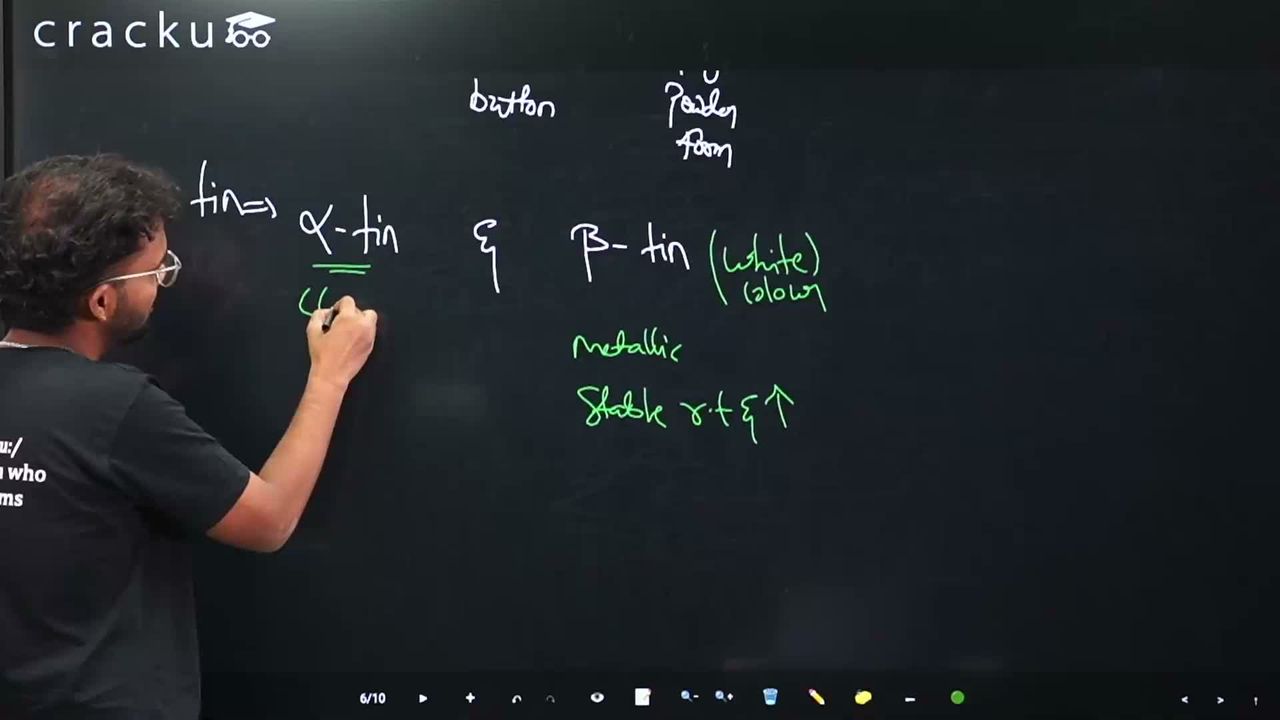 cracku
button
powder
form
tin⇒ α-tin & β-tin (white)
colour
metallic
Stable r.t & ↑
u:/
who
ms
6/10